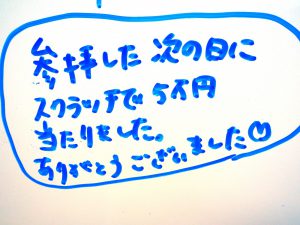 参拝した次の日に
スクラッチで5万円
当たりました。
ありがとうございました